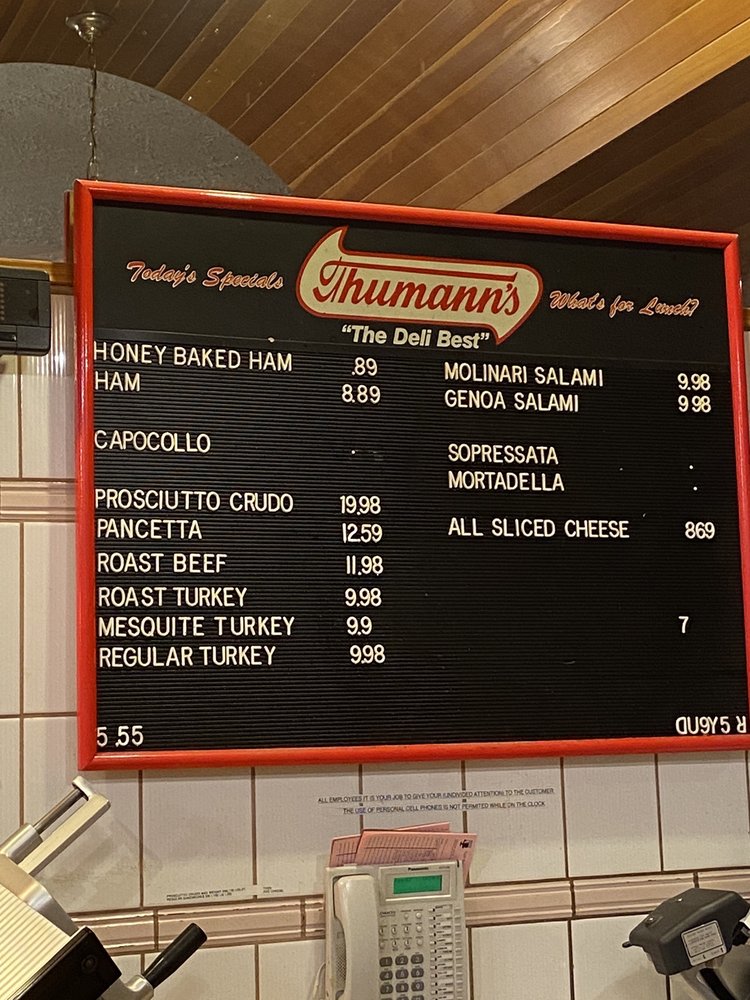 Today's Specials
Thumann's
What's for Lunch?
"The Deli Best"
HONEY BAKED HAM .89
HAM 8.89
CAPOCOLLO .
PROSCIUTTO CRUDO 19.98
PANCETTA 12.59
ROAST BEEF 11.98
ROAST TURKEY 9.98
MESQUITE TURKEY 9.9
REGULAR TURKEY 9.98
5.55
MOLINARI SALAMI 9.98
GENOA SALAMI 9 98
SOPRESSATA .
MORTADELLA .
ALL SLICED CHEESE 869
7
ALL EMPLOYEES IT IS YOUR JOB TO GIVE YOUR (UNDIVIDED ATTENTION) TO THE CUSTOMER
THE USE OF PERSONAL CELL PHONES IS NOT PERMITTED WHILE ON THE CLOCK
Panasonic